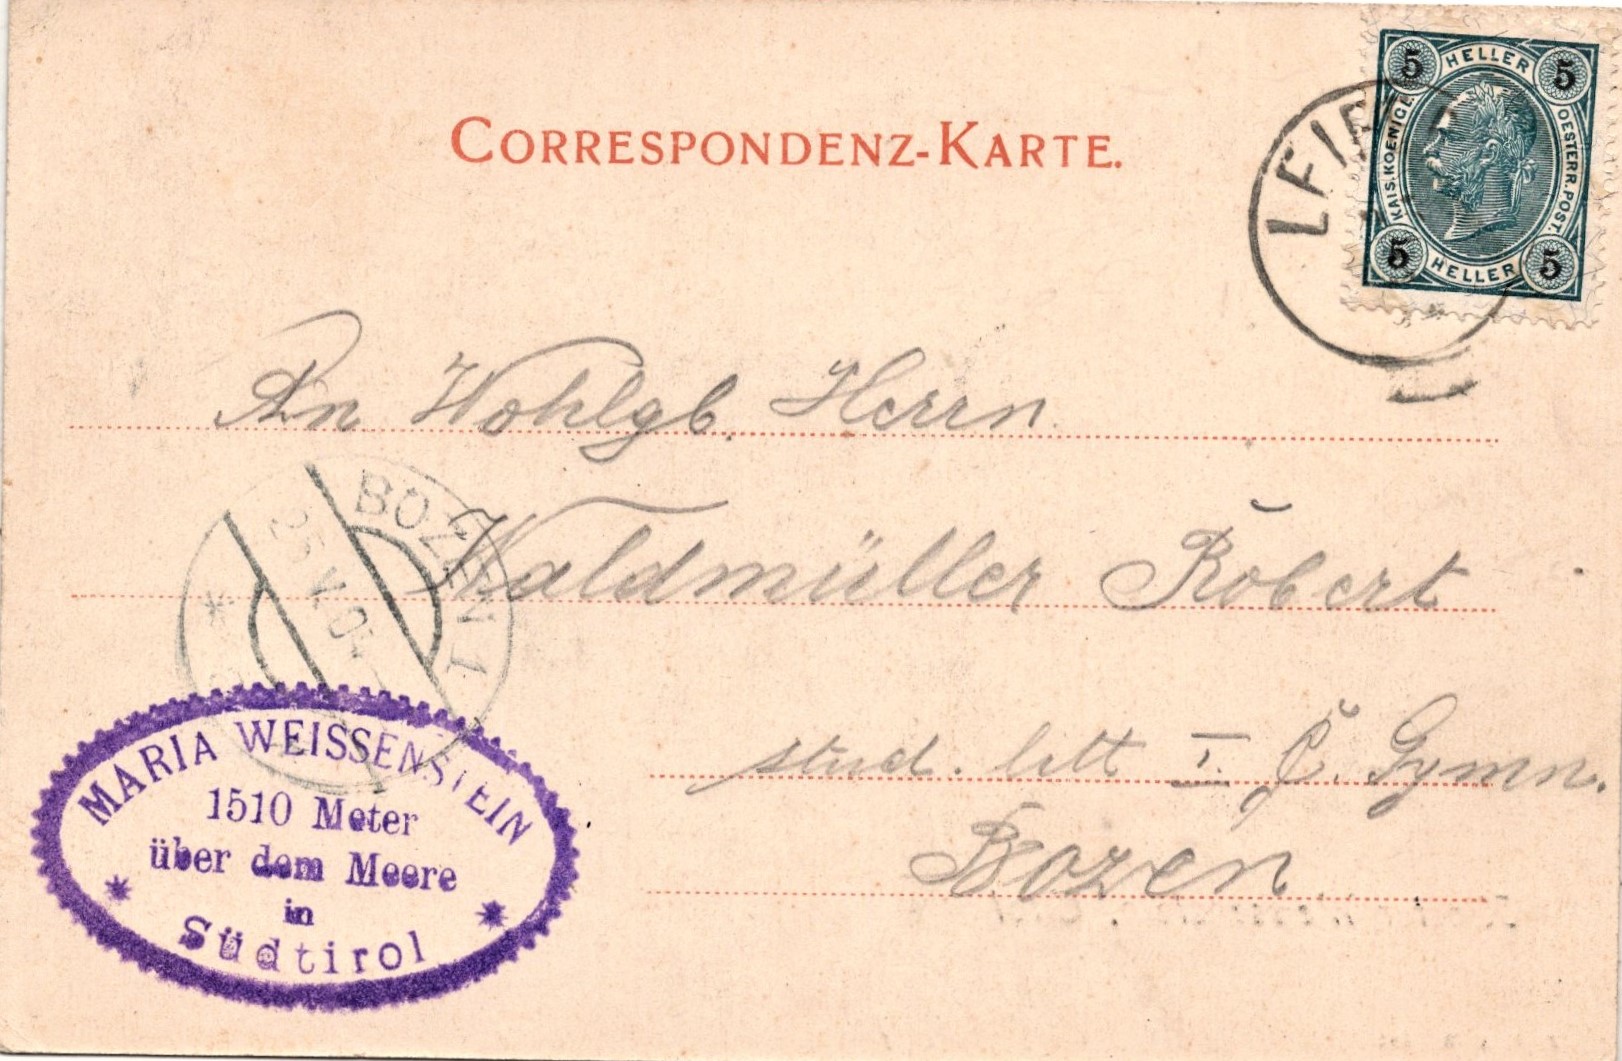 CORRESPONDENZ-KARTE.
5 HELLER 5
KAIS. KOENIGL.
OESTERR. POST.
5 HELLER 5
An Wohlgb. Herrn
Waldmüller Robert
stud. litt I. C. Gymn.
Bozen
BOZEN 1
MARIA WEISSENSTEIN
1510 Meter
über dem Meere
in
Südtirol